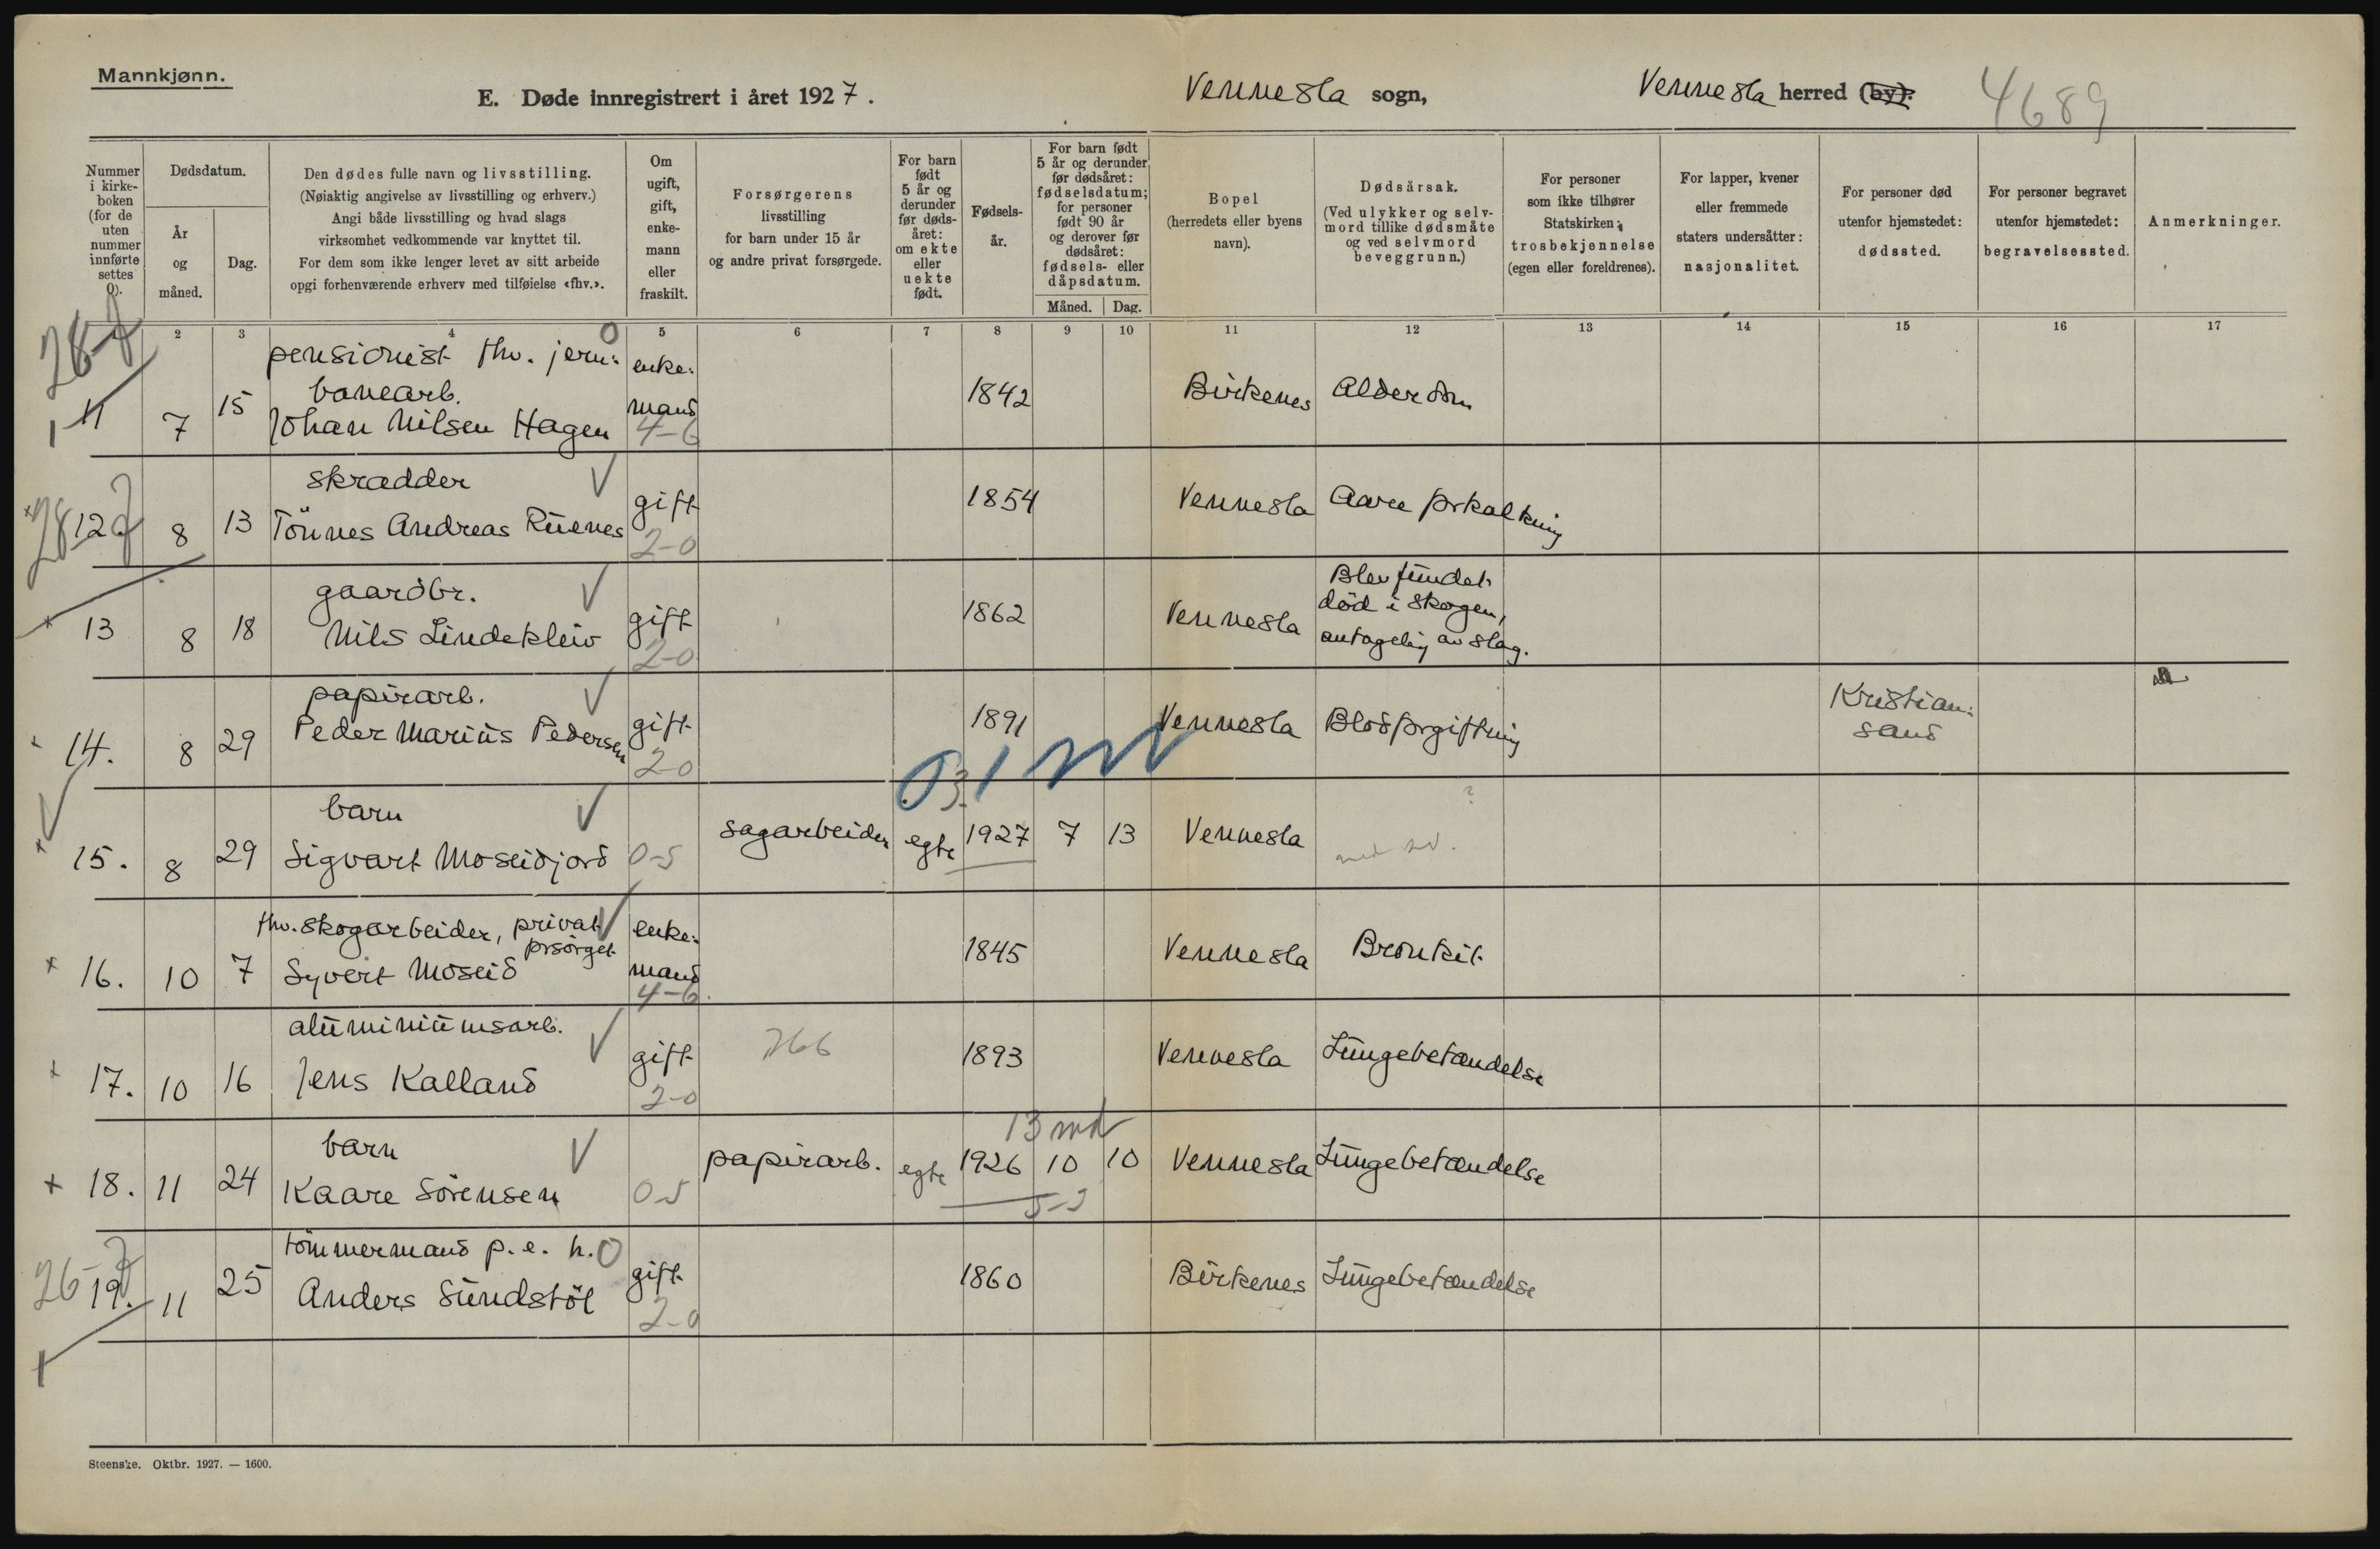 Mannkjønn.
E. Døde innregistrert i året 1927. Vennesla sogn, Vennesla herred (by). 4689
Nummer i kirkeboken (for de uten nummer innførte settes 0).
Dødsdatum.
År og måned.
Dag.
Den dødes fulle navn og livsstilling.
(Nøiaktig angivelse av livsstilling og erhverv.)
Angi både livsstilling og hvad slags
virksomhet vedkommende var knyttet til.
For dem som ikke lenger levet av sitt arbeide
opgi forhenværende erhverv med tilføielse «fhv.».
Om ugift, gift, enkemann eller fraskilt.
Forsørgerens
livsstilling
for barn under 15 år
og andre privat forsørgede.
For barn født 5 år og derunder før dødsåret: om ekte eller uekte født.
Fødselsår.
For barn født 5 år og derunder før dødsåret: fødselsdatum; for personer født 90 år og derover før dødsåret: fødsels- eller dåpsdatum.
Måned. Dag.
Bopel
(herredets eller byens navn).
Dødsårsak.
(Ved ulykker og selvmord tillike dødsmåte og ved selvmord beveggrunn.)
For personer som ikke tilhører Statskirken: trosbekjennelse (egen eller foreldrenes).
For lapper, kvener eller fremmede staters undersåtter: nasjonalitet.
For personer død utenfor hjemstedet: dødssted.
For personer begravet utenfor hjemstedet: begravelsessted.
Anmerkninger.
2 3 4 5 6 7 8 9 10 11 12 13 14 15 16 17
pensionist fhv. jern:
banearb.
11 7 15 Johan Nilsen Hagen enke:mand 4-6 1842 Birkenes Alderdom
skrædder
12 8 13 Tönnes Andreas Rüenes gift 2-0 1854 Vennesla Aareforkalkning
gaardbr.
13 8 18 Nils Lindekleiv gift 2-0 1862 Vennesla Blev fündet
död i skogen,
antagelig av slag.
papirarb.
14. 8 29 Peder Marius Pedersen gift 2-0 1891 Vennesla Blodforgiftning Kristian:
sand
barn
15. 8 29 Sigvart Moseidjord 0-5 sagarbeider egte 1927 7 13 Vennesla ?
fhv. skogarbeider, privat
forsørget
16. 10 7 Syvert Moseid enke:mand 4-6 1845 Vennesla Bronkit
alüminiümsarb.
17. 10 16 Jens Kalland gift 2-0 266 1893 Vennesla Lüngebetændelse
13 md
barn
18. 11 24 Kaare Sörensen 0-5 papirarb. egte 1926 10 10 Vennesla Lüngebetændelse
tömmermand p. e. h.
19. 11 25 Anders Sündstöl gift 2-0 1860 Birkenes Lüngebetændelse
Steenske. Oktbr. 1927. — 1600.